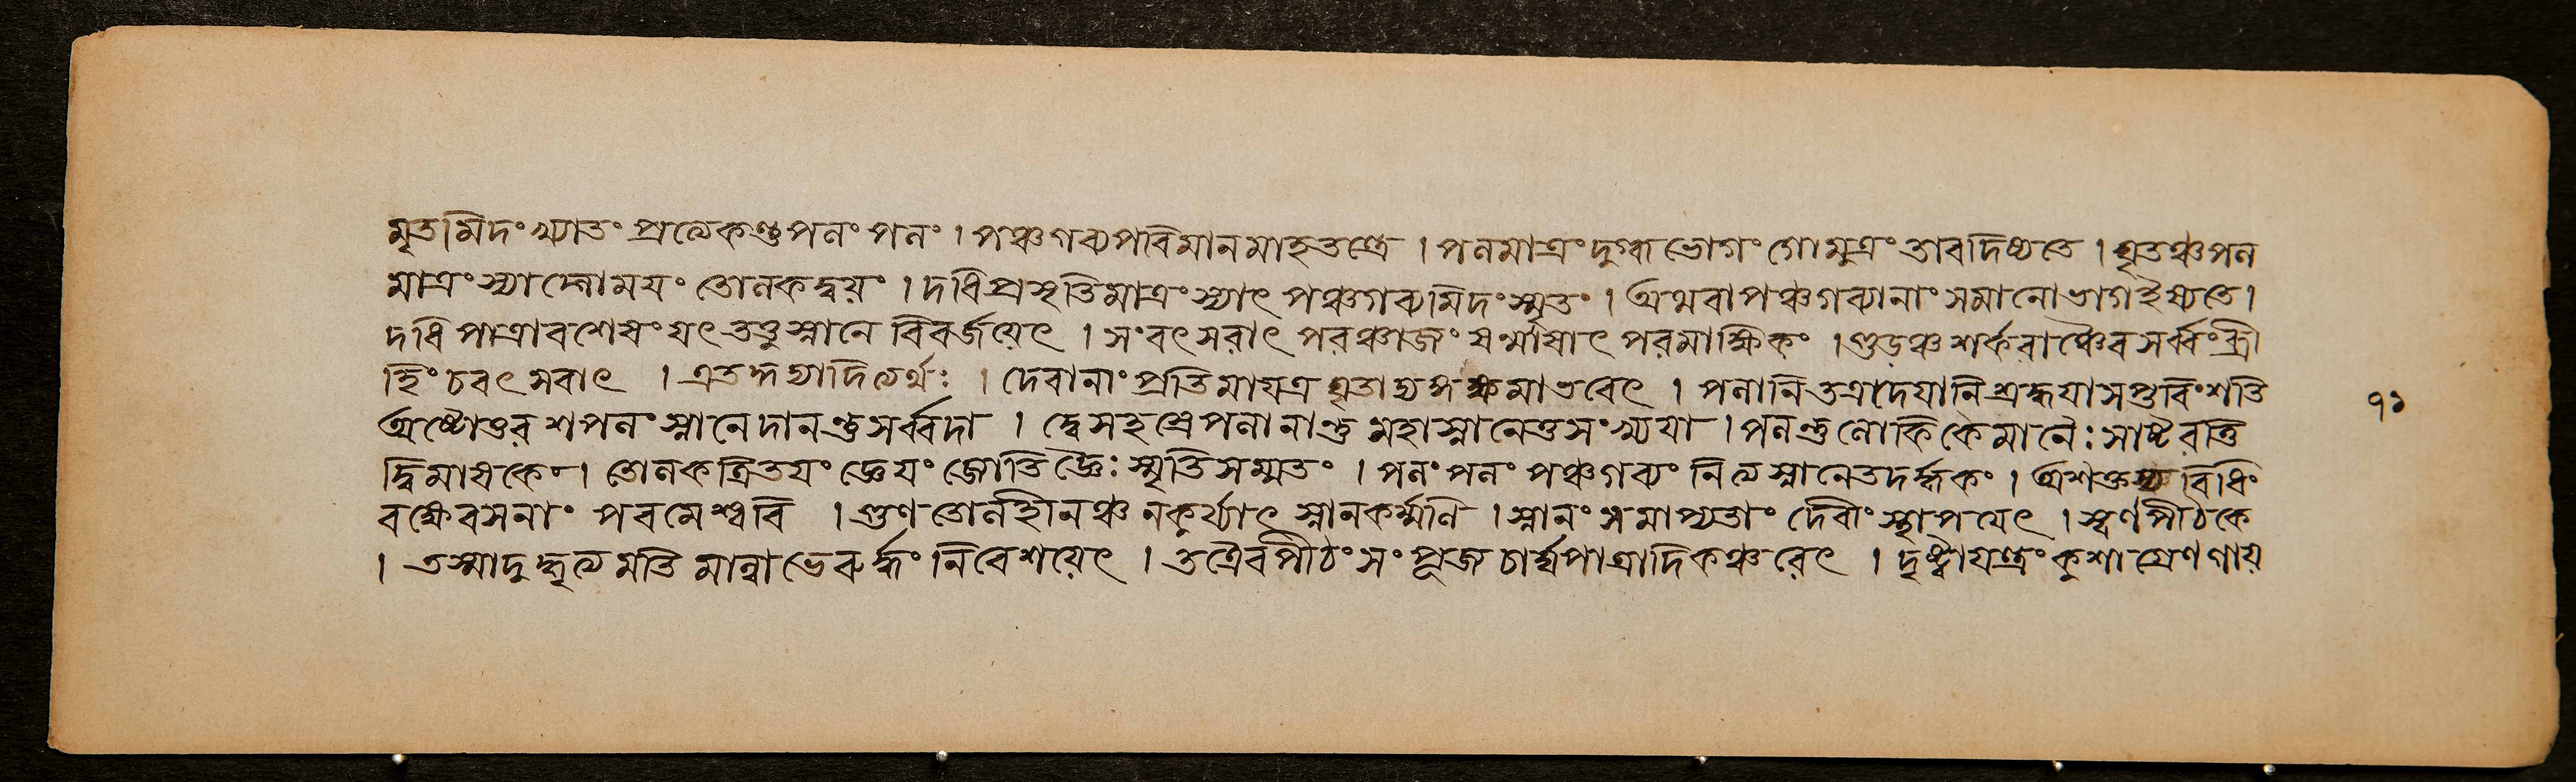 মৃতমিদং খ্যাতং প্রত্যেকন্তু পনং পনং । পঞ্চগব্যপরিমানমাহ তন্ত্রে । পনমাত্রং দুগ্ধভোগং গোমুত্রং তাবদিষ্যতে । ঘৃতঞ্চ পন
মাত্রং স্যাদ্গোময়ং তোনকদ্বয়ং । দধিপ্রসৃতিমাত্রং স্যাৎ পঞ্চগব্যমিদং স্মৃতং । অথবা পঞ্চগব্যানাং সমানো ভাগ ইষ্যতে ।
দধি পাত্রাবশেষং যৎ তত্তু স্নানে বিবর্জয়েৎ । সংবৎসরাৎ পরঞ্চাজ্যং ষন্মাসাৎ পরমাক্ষিকং । গুড়ঞ্চ শর্করাঞ্চৈব সর্ব্বং ব্রী
হিং চ বৎসরাৎ । এতদ্দদ্যাদিত্যর্থঃ । দেবানাং প্রতিমা যত্র ঘৃতাভ্যঙ্গক্ষমা ভবেৎ । পনানি তত্র দেয়ানি শ্রদ্ধয়া সপ্তবিংশতি
অষ্টোত্তর শপনং স্নানে দানন্তু সর্ব্বদা । দ্বে সহস্রে পনানান্তু মহাস্নানে ত সংখ্যয়া । পনন্তু লৌকিকৈ মানৈঃ সাষ্টরত্তি
দ্বিমাষকং । তোনকত্রিতয়ং জ্ঞেয়ং জোতিজ্ঞৈঃ স্মৃতিসম্মতং । পনং পনং পঞ্চগব্যং নিত্যস্নানে তদর্দ্ধকং । অশক্তস্য বিধিং
বক্ষ্যেবসনাং পরমেশ্বরি । গুণতোর্নহীনঞ্চ ন কুর্য্যাৎ স্নানকর্ম্মণি । স্নানং সমাপ্যতাং দেবীং স্থাপয়েৎ । স্বর্ণপীঠকে
। তস্মাদুদ্ধৃত্য মতিমান্বাভেরুর্দ্ধং নিবেশয়েৎ । তত্রৈব পীঠং সংপূজ্য চার্ঘ্যপাত্রাদিকঞ্চরেৎ । দৃষ্ট্বা যন্ত্রং কুশাগ্রেণ গায়
৭১